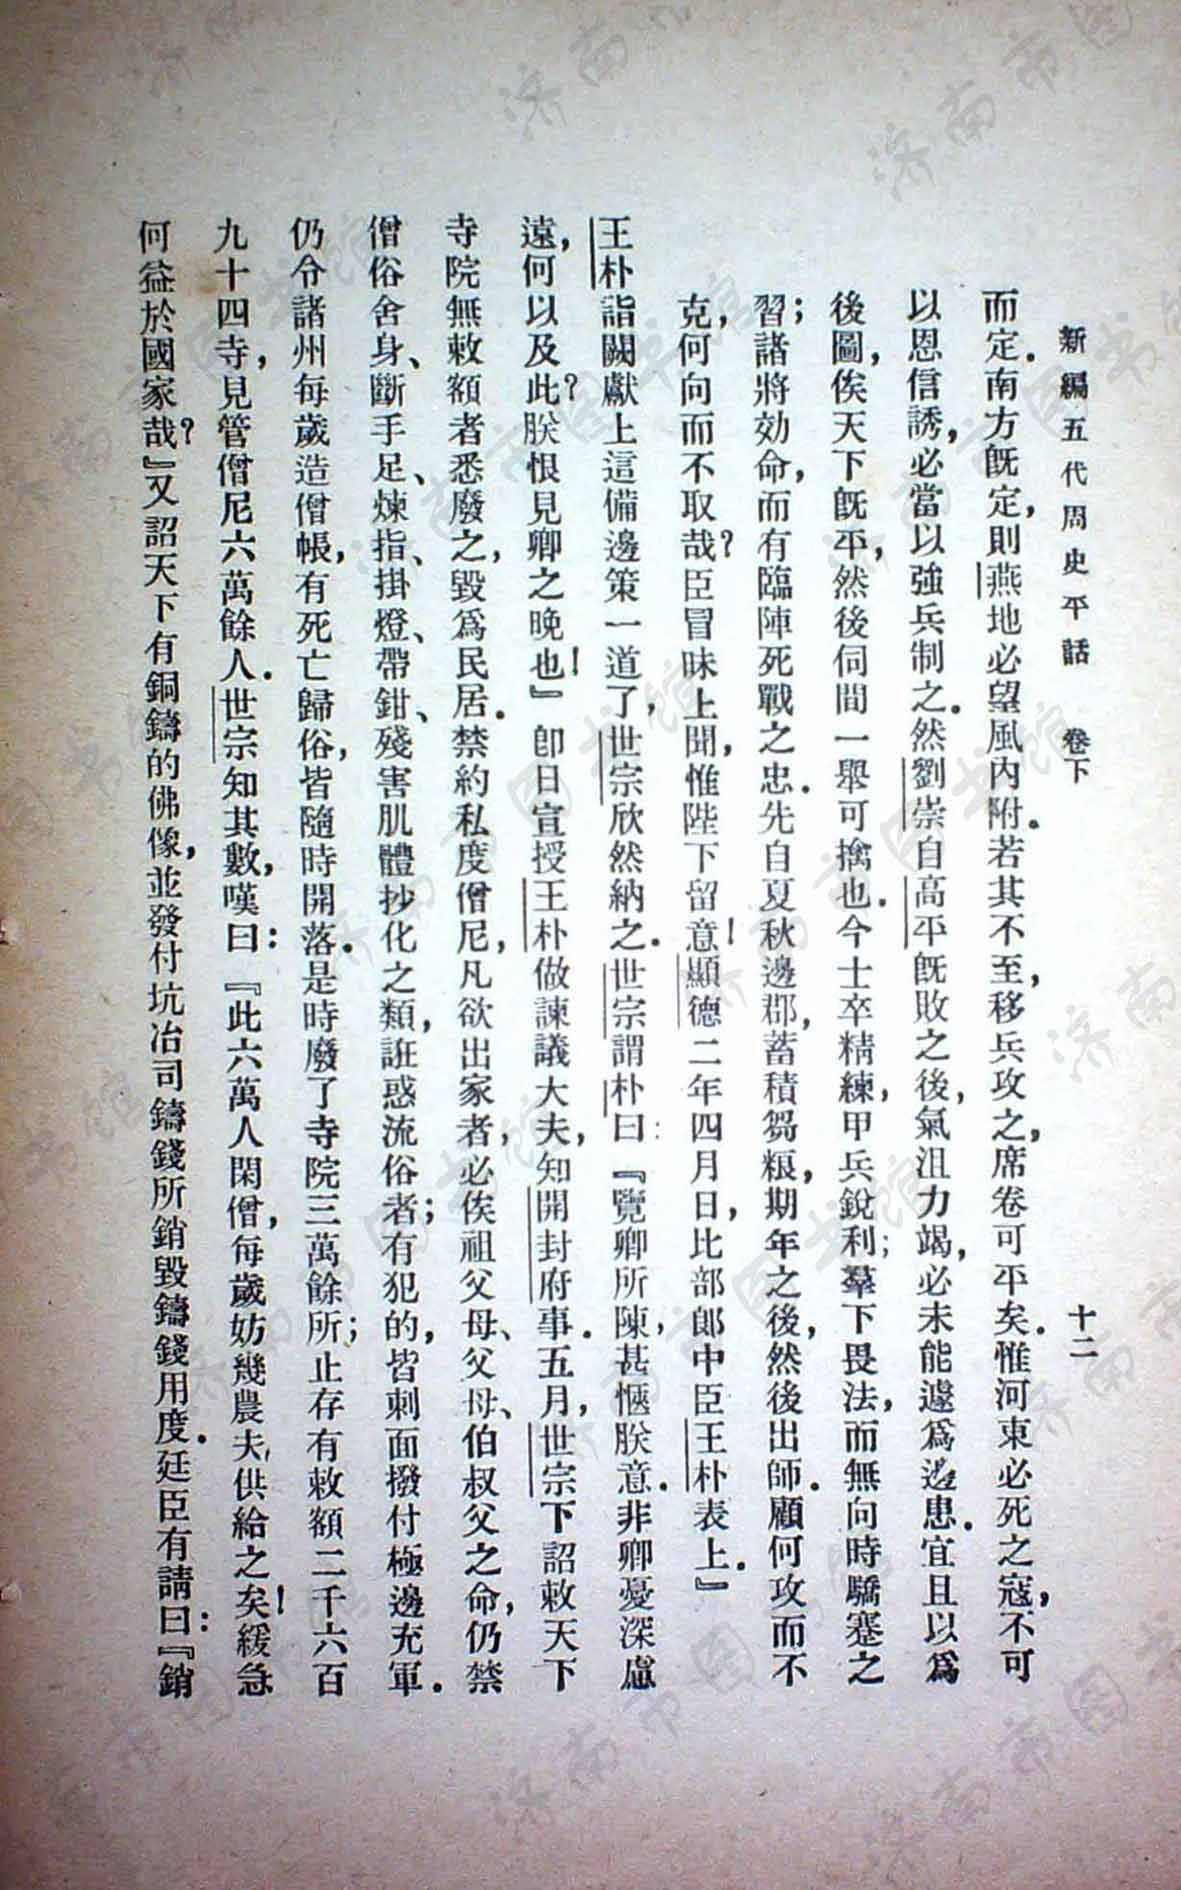 新編五代周史平話　卷下　十二
而定．南方旣定，則燕地必望風內附．若其不至，移兵攻之，席卷可平矣．惟河東必死之寇，不可
以恩信誘，必當以強兵制之．然劉崇自高平旣敗之後，氣沮力竭，必未能遽爲邊患．宜且以爲
後圖，俟天下旣平，然後伺間一舉可擒也．今士卒精練，甲兵銳利；羣下畏法，而無向時驕蹇之
習；諸將効命，而有臨陣死戰之忠．先自夏秋邊郡，蓄積芻粮，期年之後，然後出師．顧何攻而不
克，何向而不取哉？臣冒昧上聞，惟陛下留意！顯德二年四月日，比部郞中臣王朴表上．』
王朴詣闕獻上這備邊策一道了，世宗欣然納之．世宗謂朴曰：『覽卿所陳，甚愜朕意．非卿憂深慮
遠，何以及此？朕恨見卿之晚也！』卽日宣授王朴做諫議大夫，知開封府事．五月，世宗下詔敕天下
寺院無敕額者悉廢之，毀爲民居．禁約私度僧尼，凡欲出家者，必俟祖父母、父母、伯叔父之命，仍禁
僧俗舍身、斷手足、煉指、掛燈、帶鉗、殘害肌體抄化之類，誑惑流俗者；有犯的，皆刺面撥付極邊充軍．
仍令諸州每歲造僧帳，有死亡歸俗，皆隨時開落．是時廢了寺院三萬餘所；止存有敕額二千六百
九十四寺，見管僧尼六萬餘人．世宗知其數，嘆曰：『此六萬人閑僧，每歲妨幾農夫供給之矣！緩急
何益於國家哉？』又詔天下有銅鑄的佛像，並發付坑冶司鑄錢所銷毀鑄錢用度．廷臣有請曰：『銷
济南市图书馆